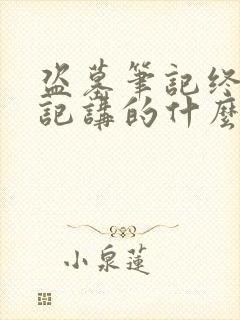 盗墓筆記终
記講的什麼
小泉蓮